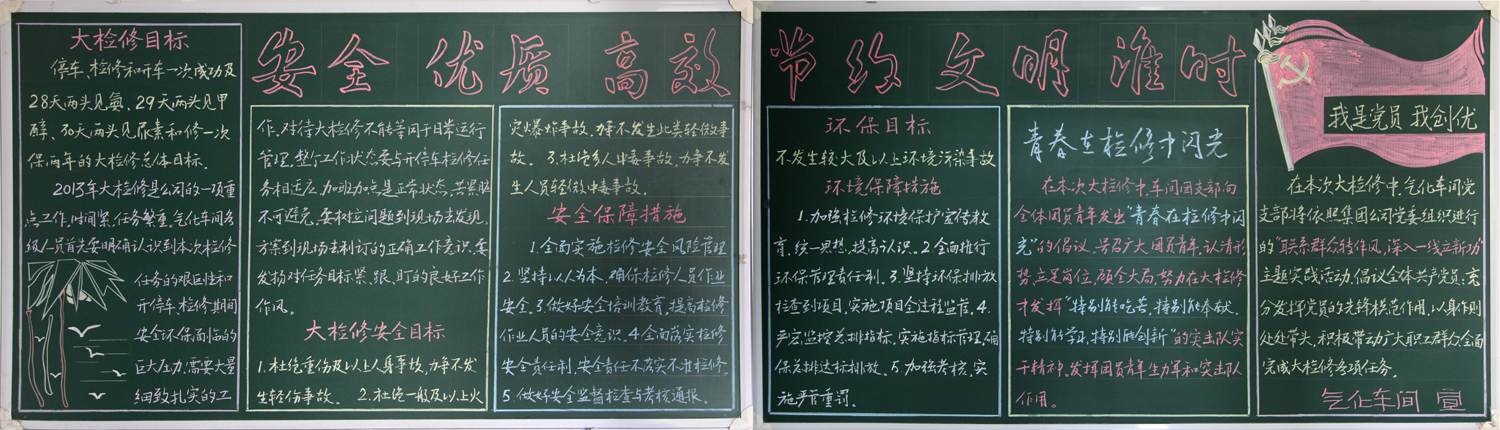 大检修目标
停车、检修和开车一次成功及
28天两头见氨、29天两头见甲
醇、30天两头见尿素和修一次
保两年的大检修总体目标。
2013年大检修是公司的一项重
点工作,时间紧、任务繁重。气化车间各
级人员首先要明确认识到本次检修
任务的艰巨性和
开停车、检修期间
安全环保面临的
巨大压力,需要大量
细致扎实的工
安全 优质 高效
作。对待大检修不能等同于日常运行
管理,整个工作状态要与开停车检修任
务相适应。加班加点是正常状态,苦累脏
不可避免。要树立问题到现场去发现,
方案到现场去制订的正确工作意识,要
发扬对任务目标紧、跟、盯的良好工作
作风。
大检修安全目标
1.杜绝重伤及以上人身事故,力争不发
生轻伤事故。 2.杜绝一般及以上火
灾爆炸事故,力争不发生此类轻微事
故。 3.杜绝多人中毒事故,力争不发
生人员轻微中毒事故。
安全保障措施
1.全面实施检修安全风险管理
2.坚持以人为本,确保检修人员作业
安全。3.做好安全培训教育,提高检修
作业人员的安全意识。4.全面落实检修
安全责任制,安全责任不落实不准检修。
5.做好安全监督检查与考核通报。
节约 文明 准时
环保目标
不发生较大及以上环境污染事故
环境保障措施
1.加强检修环境保护宣传教
育,统一思想,提高认识。2.全面推行
环保管理责任制。3.坚持环保排放
检查到项目,实施项目全过程监管。4.
严密监控总排指标,实施指标管理,确
保总排达标排放。5.加强考核,实
施严管重罚。
青春在检修中闪光
在本次大检修中,车间团支部向
全体团员青年发出“青春在检修中闪
光”的倡议。号召广大团员青年,认清形
势,立足岗位,顾全大局,努力在大检修
中发挥“特别能吃苦,特别能奉献,
特别能学习,特别能创新”的突击队实
干精神,发挥团员青年生力军和突击队
作用。
我是党员 我创优
在本次大检修中,气化车间党
支部将依照集团公司党委组织进行
的“联系群众转作风,深入一线立新功”
主题实践活动,倡议全体共产党员:充
分发挥党员的先锋模范作用,以身作则
处处带头,积极带动广大职工群众,全面
完成大检修各项任务。
气化车间 宣